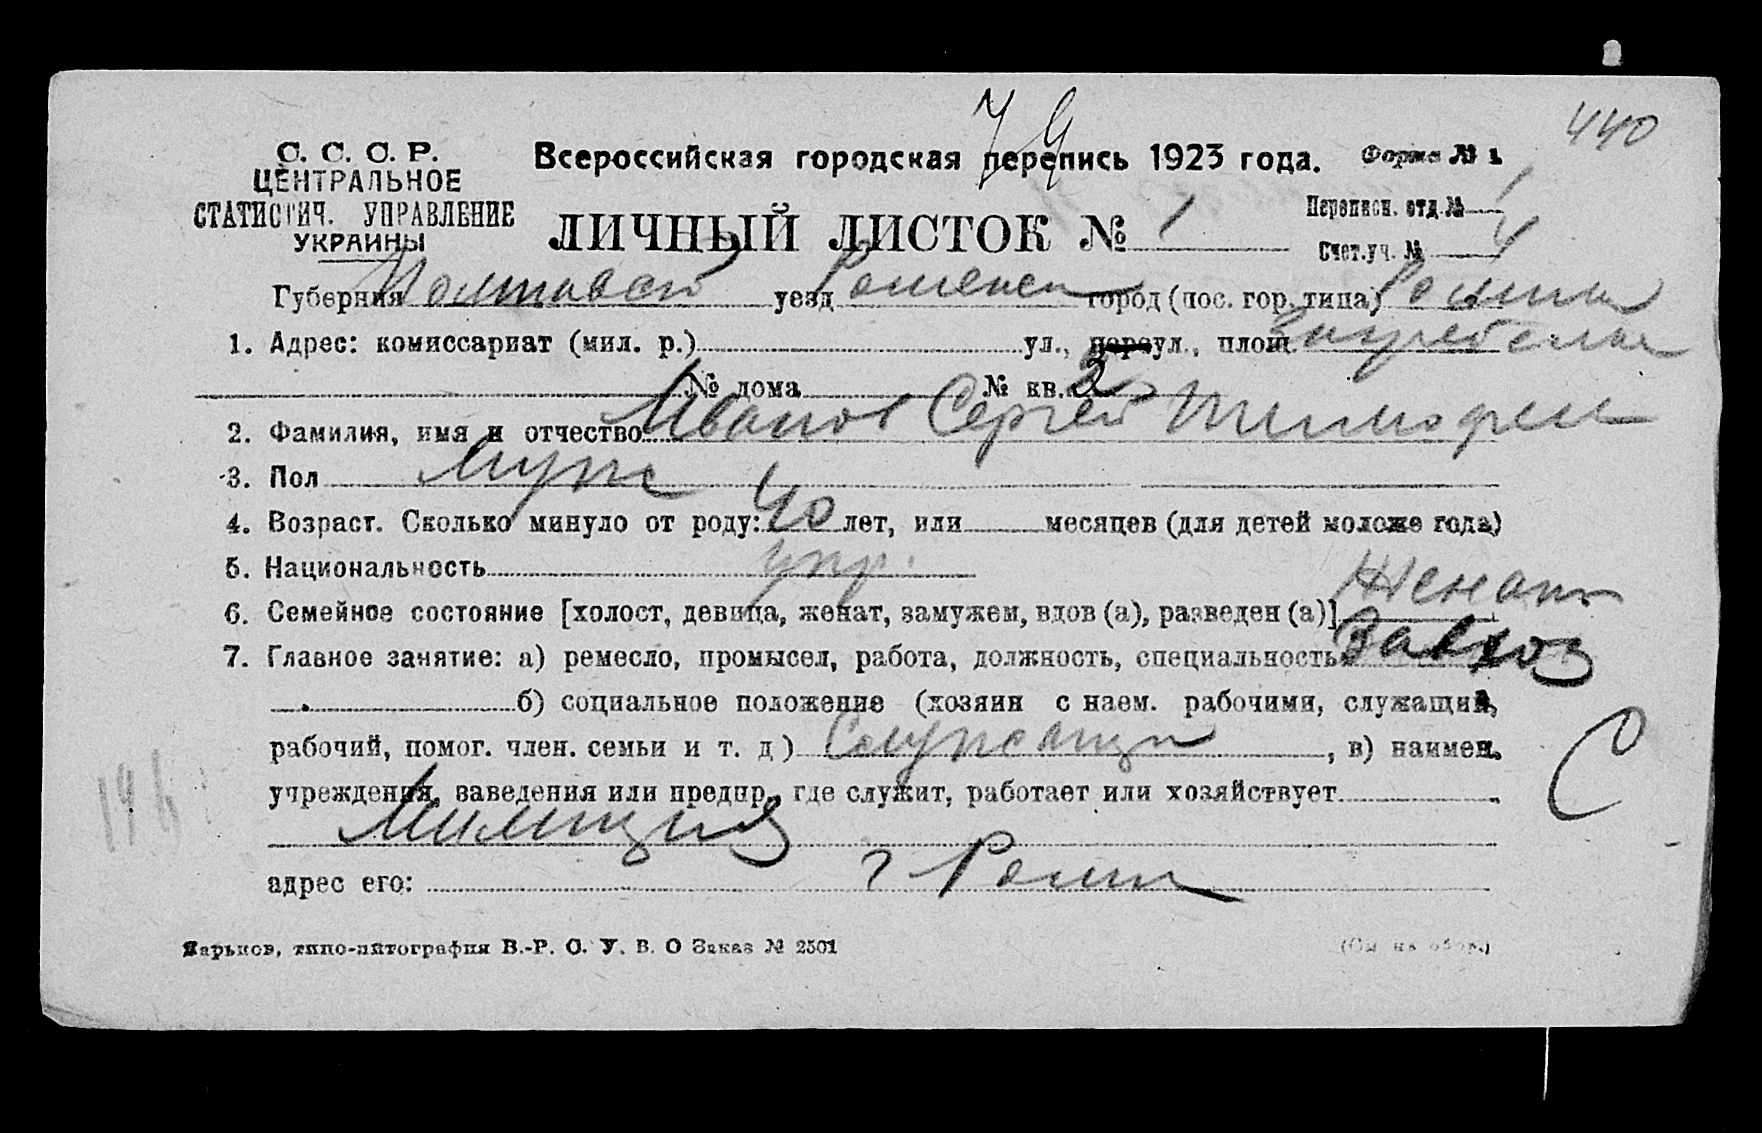 440
С. С. С. Р.
ЦЕНТРАЛЬНОЕ
СТАТИСТИЧ. УПРАВЛЕНИЕ
УКРАИНЫ
Всероссийская городская перепись 1923 года. Форма № 1
ЛИЧНЫЙ ЛИСТОК № 1
Переписн. отд. № 1
Счет. уч. № 4
Губерния Полтавск уезд Роменск город (пос. гор. типа) Ромны
1. Адрес: комиссариат (мил. р.) ул., переул., площ. Загребелье
№ дома № кв. 2
2. Фамилия, имя и отчество Иванов Сергей Тимофеи
3. Пол муж
4. Возраст. Сколько минуло от роду: 40 лет, или месяцев (для детей моложе года)
5. Национальность укр.
6. Семейное состояние [холост, девица, женат, замужем, вдов (а), разведен (а)] Женат
7. Главное занятие: а) ремесло, промысел, работа, должность, специальность Завхоз
б) социальное положение (хозяин с наем. рабочими, служащий,
рабочий, помог. член. семьи и т. д) Служащи, в) наимен.
С
учреждения, заведения или предпр., где служит, работает или хозяйствует
Милиция
адрес его: г Ромн
Харьков, типо-литография В.-Р. С. У. В. О Заказ № 2501
(См на обор.)